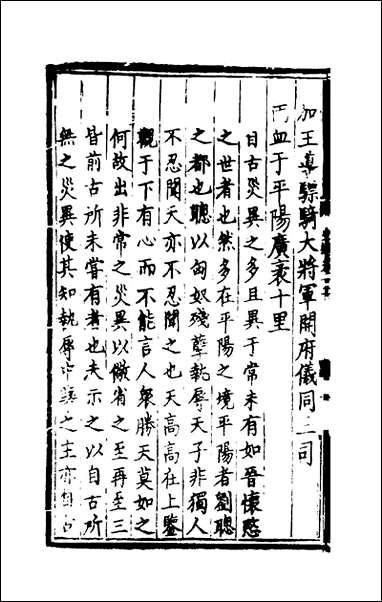 加王導驃騎大將軍開府儀同三司
雨血于平陽廣袤十里
自古災異之多且異于常未有如晉懷愍
之世者也然多在平陽之境平陽者劉聰
之都也聰以匈奴殘孽執辱天子非獨人
不忍聞天亦不忍聞之也天高高在上鑒
觀于下有心而不能言人衆勝天莫如之
何故出非常之災異以儆省之至再至三
皆前古所未嘗有者也夫示之以自古所
無之災異使其知執辱中之主亦自古